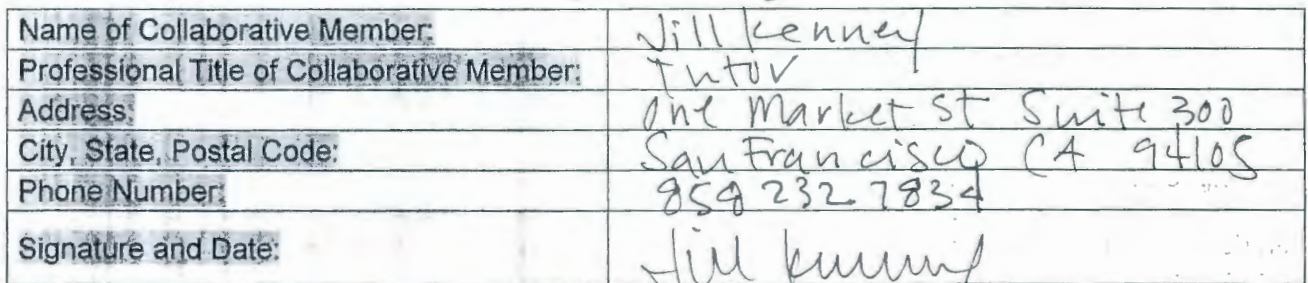 Name of Collaborative Member: Jill Kenney
Professional Title of Collaborative Member: Tutor
Address: One Market St Suite 300
City, State, Postal Code: San Francisco CA 94105
Phone Number: 858 232 7834
Signature and Date: Jill Kenney